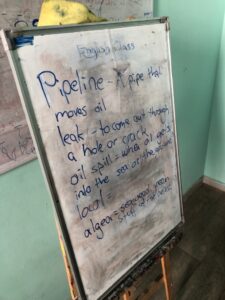 English Class
Pipeline - A pipe that
moves oil
leak = to come out through
a hole or crack
oil spill = when oil gets
into the sea or the
local =
algae = seaweed, green
stuff in the